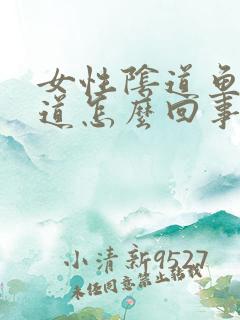 女性陰道魚
道怎麽回事
小清新9527
未经同意禁止转载